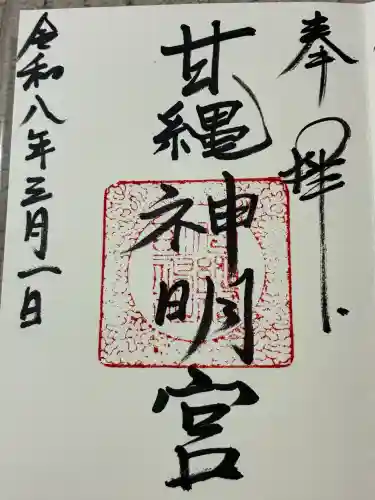 奉拝
甘縄神明宮
令和八年三月一日